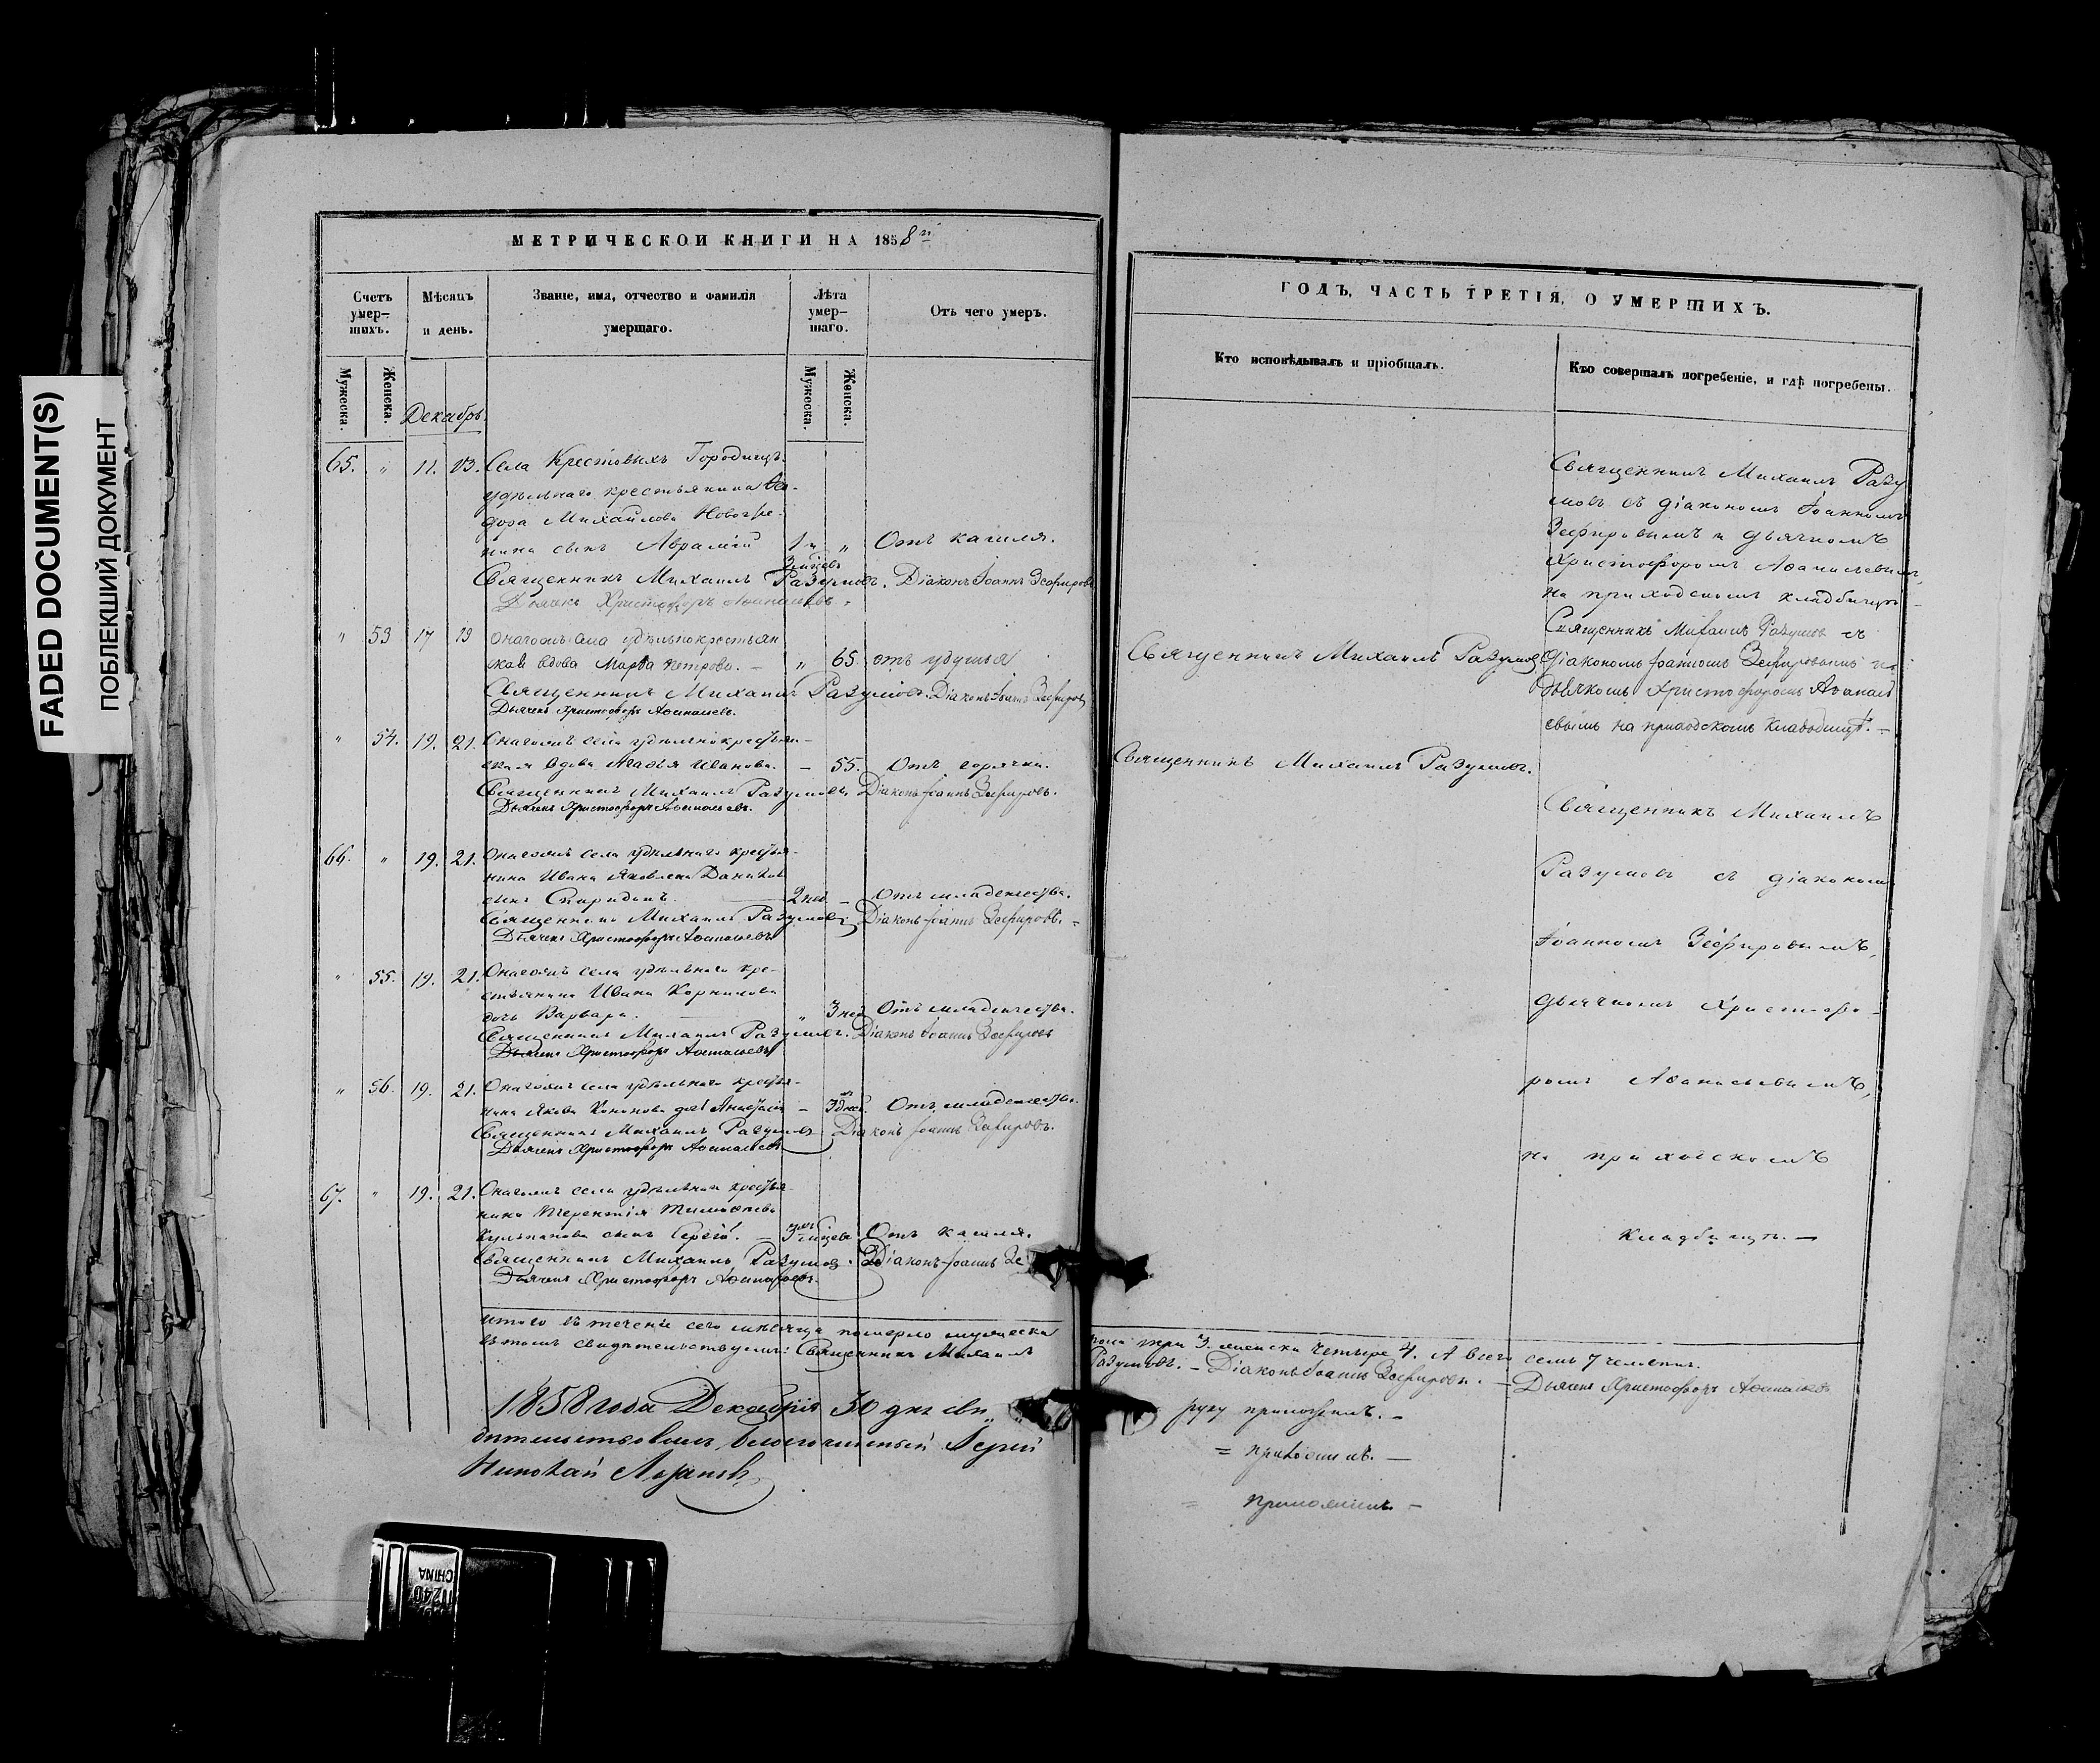 FADED DOCUMENT(S)
ПОБЛЕКШИЙ ДОКУМЕНТ
МЕТРИЧЕСКОЙ КНИГИ НА 1858й
Счетъ умер-шихъ.
Мѣсяцъ и день.
Званіе, имя, отчество и фамилія умершаго.
Лѣта умер-шаго.
Отъ чего умеръ.
Мужеска.
Женска.
Декабрь.
Мужеска.
Женска.
65. " 11. 13. Села Крестовыхъ Городищъ
удѣльнаго крестьянина Ѳео-
дора Михайлова
сынъ Аврамій 1 и " Отъ кашля.
Священникъ Михаилъ Разумовъ. Діаконъ Іоаннъ Зефировъ
Дьячекъ Христофоръ Аѳанасьевъ.
" 53 17 19 Онагожъ села удѣльнокрестьян
ская вдова Марѳа Петрова. — " 65. отъ удушья
Священникъ Михаилъ Разумовъ. Діаконъ Іоаннъ Зефировъ
Дьячекъ Христофоръ Аѳанасьевъ.
" 54. 19. 21. Онагожъ села удѣльнокрестьян-
ская вдова Агаѳья Иванова. — 55. Отъ горячки.
Священникъ Михаилъ Разумовъ Діаконъ Іоаннъ Зефировъ.
Дьячекъ Христофоръ Аѳанасьевъ.
66. " 19. 21. Онагожъ села удѣльнаго крестья-
нина Ивана Яковлева
сынъ Спиридонъ. 2 нед. — Отъ младенчества.
Священникъ Михаилъ Разумовъ Діаконъ Іоаннъ Зефировъ. =
Дьячекъ Христофоръ Аѳанасьевъ
" 55. 19. 21. Онагожъ села удѣльнаго кре-
стьянина Ивана Корнилова
дочь Варвара. " 3 нед. Отъ младенчества.
Священникъ Михаилъ Разумовъ. Діаконъ Іоаннъ Зефировъ
Дьячекъ Христофоръ Аѳанасьевъ
" 56. 19. 21. Онагожъ села удѣльнаго крестья-
нина Якова Кононова дочь Анастасія — Отъ младенчества.
Священникъ Михаилъ Разумовъ Діаконъ Іоаннъ Зефировъ.
Дьячекъ Христофоръ Аѳанасьевъ
67. " 19. 21. Онагожъ села удѣльнаго крестья-
нина Терентія Тимоѳеева
сынъ Сергѣй. — Отъ кашля.
Священникъ Михаилъ Разумовъ. Діаконъ Іоаннъ Зе
Дьячекъ Христофоръ Аѳанасьевъ.
Итого въ теченіе сего мѣсяца померло мужеска
въ томъ свидѣтельствуемъ: Священникъ Михаилъ
1858 года Декабря 30 дня сви-
дѣтельствовалъ благочинный Іерей
Николай
ГОДЪ, ЧАСТЬ ТРЕТІЯ, О УМЕРШИХЪ.
Кто исповѣдывалъ и пріобщалъ.
Кто совершалъ погребеніе, и гдѣ погребены.
Священникъ Михаилъ Разу
мовъ съ діакономъ Іоанномъ
Зефировымъ и дьячкомъ
Христофоромъ Аѳанасьевымъ,
на приходскомъ кладбищѣ
Священникъ Михаилъ Разумовъ
Священникъ Михаилъ Разумовъ съ
діакономъ Іоанномъ Зефировымъ и
дьячкомъ Христофоромъ Аѳанась
евымъ на приходскомъ кладбищѣ. —
Священникъ Михаилъ Разумовъ.
Священникъ Михаилъ
Разумовъ съ діакономъ
Іоанномъ Зефировымъ,
дьячкомъ Христофо-
ромъ Аѳанасьевымъ,
на приходскомъ
кладбищѣ. —
пола три 3. женска четыре 4. А всего семь 7 человѣкъ.
Разумовъ. — Діаконъ Іоаннъ Зефировъ. — Дьячекъ Христофоръ Аѳанасьевъ
руку приложилъ. —
= приложилъ. —
= приложилъ. —